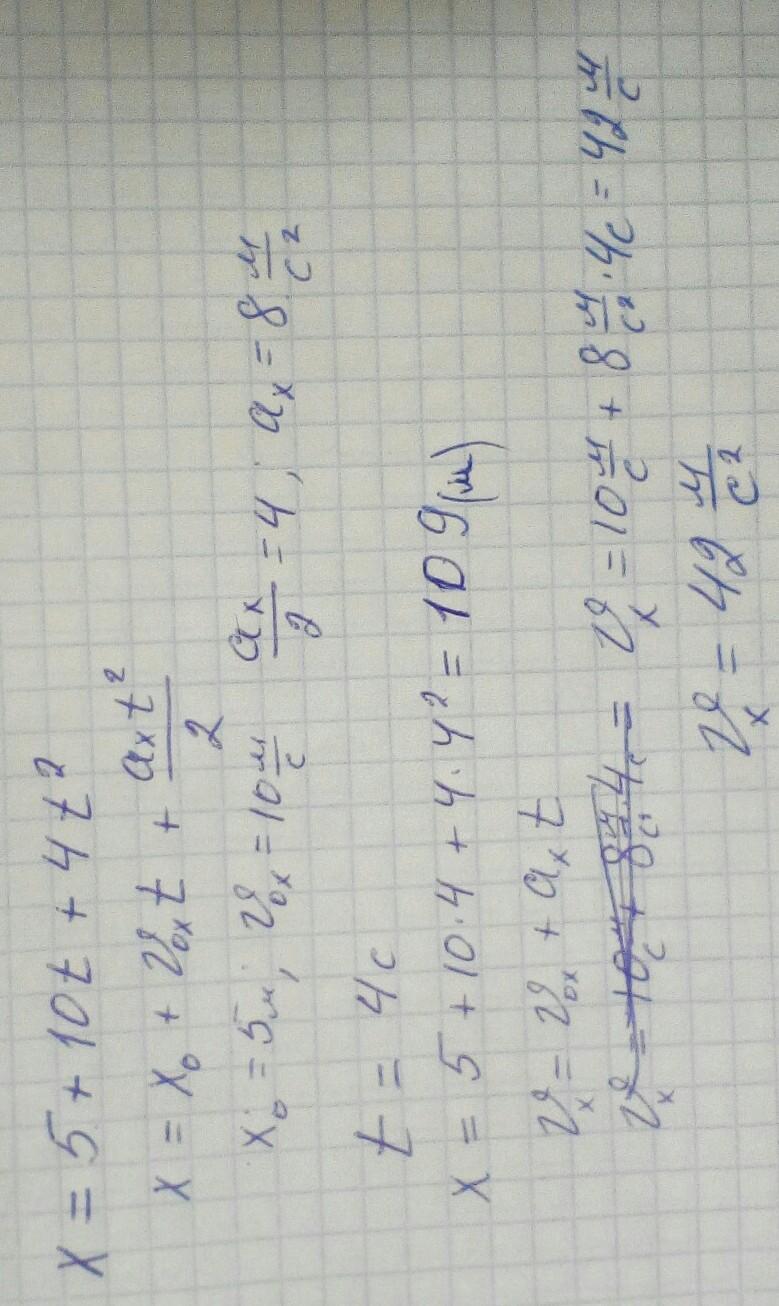 x = 5 + 10t + 4t²
x = x₀ + v₀ₓt + aₓt²/2
x₀ = 5м; v₀ₓ = 10 м/с aₓ/2 = 4; aₓ = 8 м/с²
t = 4с
x = 5 + 10·4 + 4·4² = 109(м)
vₓ = v₀ₓ + aₓt
vₓ = 10 м/с + 8 м/с²·4с = vₓ = 10 м/с + 8 м/с²·4с = 42 м/с
vₓ = 42 м/с²